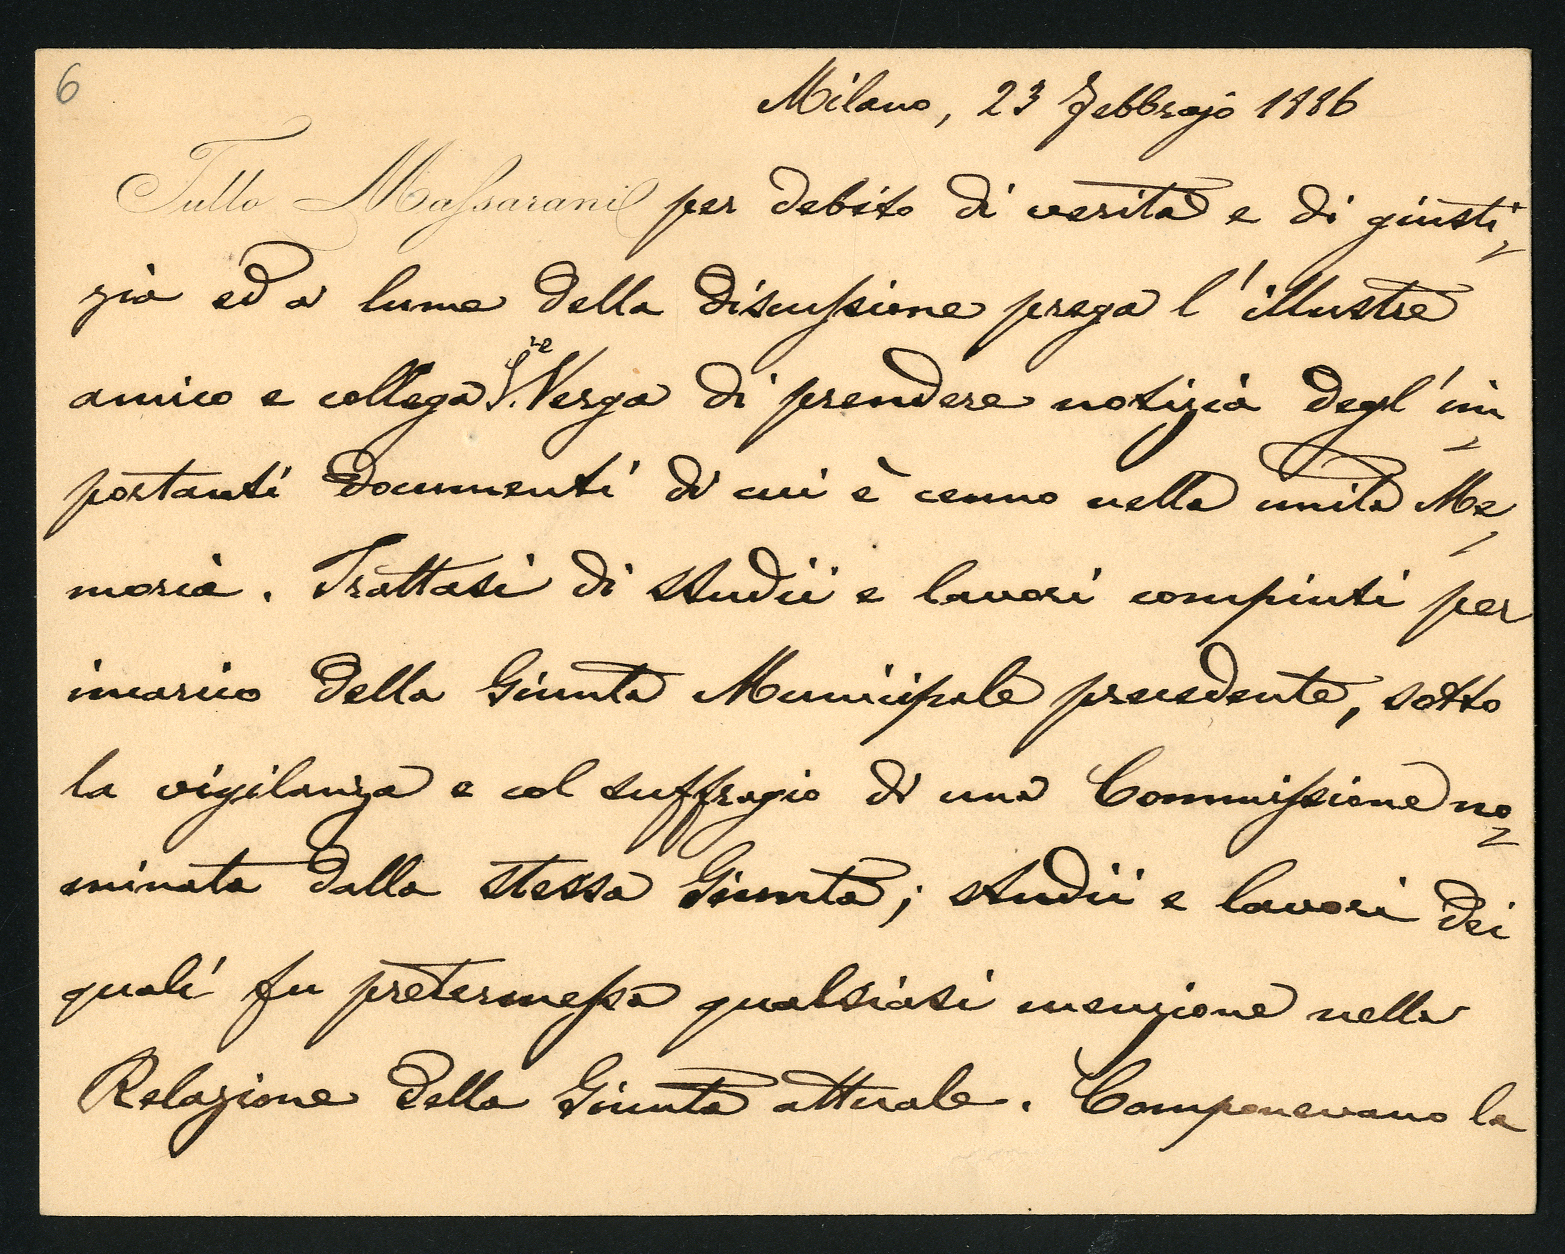 6
Milano, 23 Febbrajo 1886
Tullo Massarani per debito di verità e di giusti-
zia ed a lume della discussione prega l'illustre
amico e collega S.re Verga di prendere notizia degl'im-
portanti documenti di cui è cenno nella unita Me-
moria. Trattasi di studii e lavori compiuti per
incarico della Giunta Municipale precedente, sotto
la vigilanza e col suffragio di una Commissione no-
minata dalla stessa Giunta; studii e lavori dei
quali fu pretermessa qualsiasi menzione nella
Relazione della Giunta attuale. Componevano la